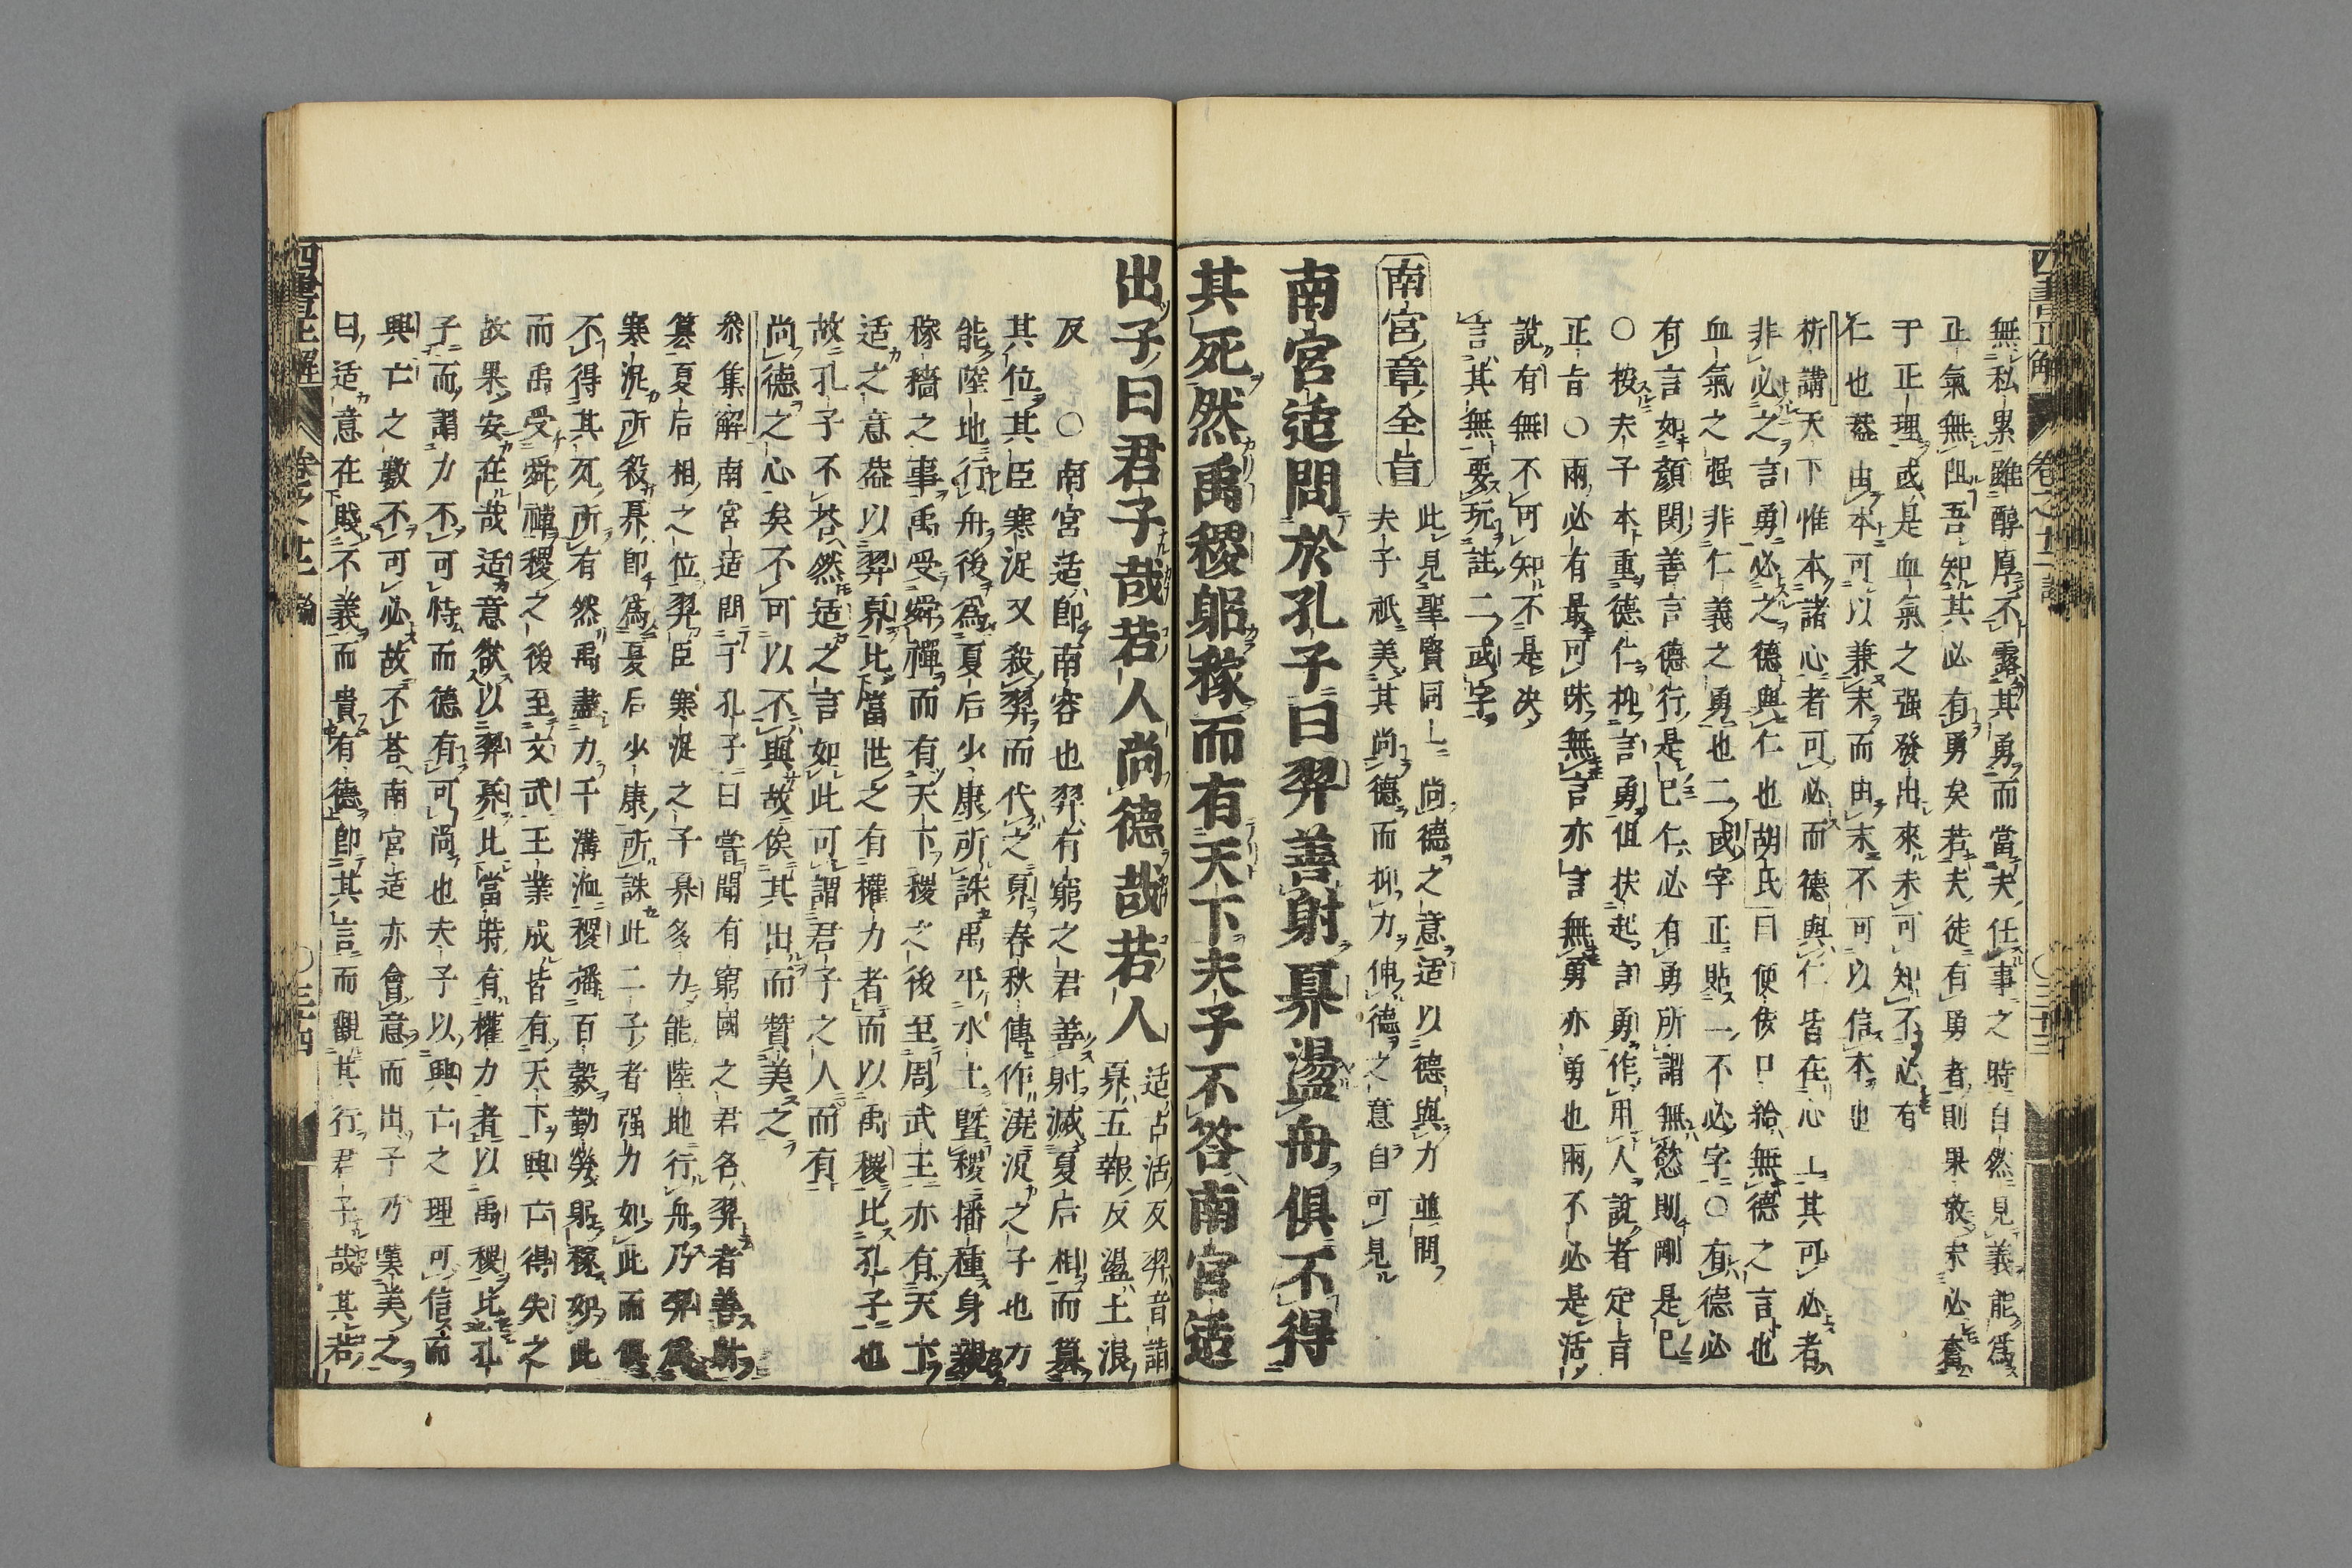 無私累雖醇厚不露其勇而當夫任事之時自然見義能爲
正氣無阻吾知其必有勇矣若夫徒有勇者則果敢
于正理或是血氣之强發出來未可知不必有
仁也葢由本可以兼末而由末不可以信本也
析講天下惟本諸心者可必而德與仁皆在心上其可必者
非必之言勇必之德與仁也胡氏曰便佞口給無德之言也
血氣之强非仁義之勇也二或字正貼一不必字○有德必
有言如顔閔善言德行是已仁必有勇所謂無慾則剛是已
○按夫子本重德仁抑言勇但扶起言勇作用人說者定旨
正旨○兩必有最可味無言亦言無勇亦勇也兩不必是活
說有無不可知不是决
言其無要玩註二或字
南宮章全旨
此見聖賢同一尚德之意适以德與力並問
夫子祇美其尚德而抑力伸德之意自可見
南宮适問於孔子曰羿善射奡盪舟俱不得
其死然禹稷躬稼而有天下夫子不答南宮适
出子曰君子哉若人尚德哉若人
适古活反羿音詣
奡五報反盪土浪
反○南宮适卽南容也羿有窮之君善射滅夏后相而篡
其位其臣寒浞又殺羿而代之奡春秋傳作澆浞之子也力
能陸地行舟後爲夏后少康所誅禹平水土曁稷播種身親
稼穡之事禹受舜禪而有天下稷之後至周武王亦有天下
适之意葢以羿奡比當世之有權力者而以禹稷比孔子也
故孔子不荅然适之言如此可謂君子之人而有
尚德之心矣不可以不與故俟其出而贊美之
叅集解南宮适問于孔子曰嘗聞有窮國之君名羿者善射
篡夏后相之位羿臣寒浞之子奡多力能陸地行舟乃羿爲
寒浞所殺奡卽爲夏后少康所誅此二子者强力如此而俱
不得其死所有然禹盡力于溝洫稷播百穀勤勞躬稼如此
而禹受舜禪稷之後至文武王業成皆有天下興亡得失之
故果安在哉适意欲以羿奡比當時有權力者以禹稷比孔
子而謂力不可恃而德有可尚也夫子以興亡之理可信而
興亡之數不可必故不荅南宮适亦會意而出子乃嘆美之
曰适意在賤不義而貴有德卽其言而觀其行君子哉其若
四書正解
卷之十二論
○三十四